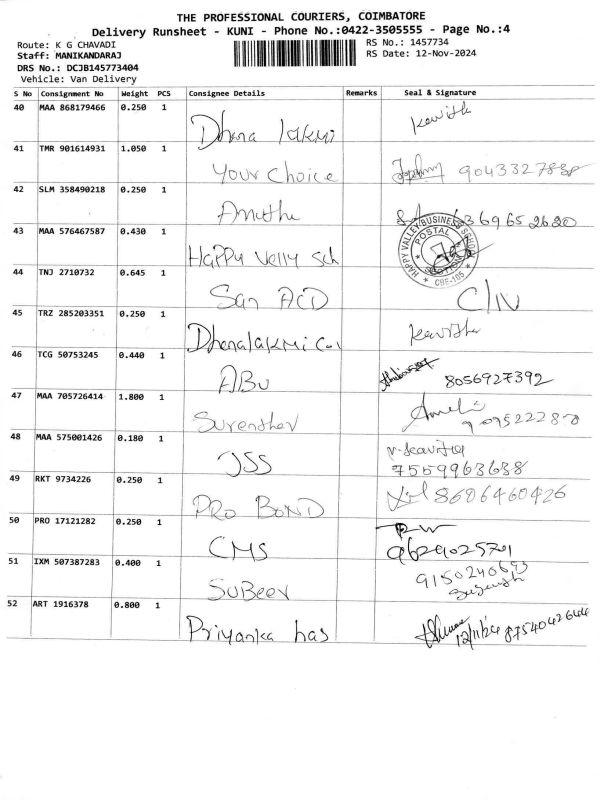 THE PROFESSIONAL COURIERS, COIMBATORE
Delivery Runsheet - KUNI - Phone No.:0422-3505555 - Page No.:4
Route: K G CHAVADI
RS No.: 1457734
Staff: MANIKANDARAJ
RS Date: 12-Nov-2024
DRS No.: DCJB145773404
Vehicle: Van Delivery
S No Consignment No Weight PCS Consignee Details Remarks Seal & Signature
40 MAA 868179466 0.250 1
Dhana lakmi
41 TMR 901614931 1.050 1
Your Choice
42 SLM 358490218 0.250 1
Anitha
43 MAA 576467587 0.430 1
HAPPY VALLEY BUSINESS SCHOOL
POSTAL
SECTION
CBE-105
Happy Velly Sch
44 TNJ 2710732 0.645 1
San ACD C/IV
45 TRZ 285203351 0.250 1
Dhenalakmi Kavitha
46 TCG 50753245 0.440 1
ABU 8056927392
47 MAA 705726414 1.800 1
Surendher
48 MAA 575001426 0.180 1
JSS 7559963638
49 RKT 9734226 0.250 1
PRO BOND 8686460426
50 PRO 17121282 0.250 1
CMS 9629025701
51 IXM 507387283 0.400 1
SUBeer
52 ART 1916378 0.800 1
Priyanka has 12/11/24 8754042644